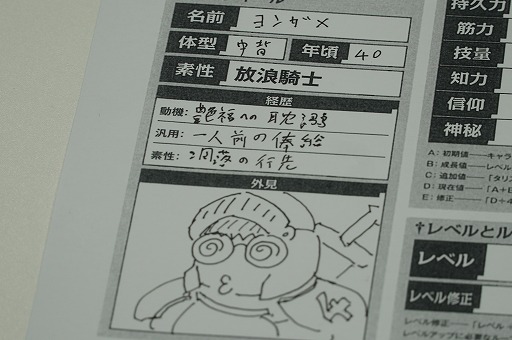 名前 ヨンザメ
体型 中背 年頃 40
素性 放浪騎士
経歴
動機: 艶福への耽溺
汎用: 一人前の俸給
素性: 凋落の行先
外見
4
持久力
筋力
技量
知力
信仰
神秘
A: 初期値――キャラ
B: 成長値――レベル
C: 追加値――「タリス
D: 現在値――「A+B
E: 修正――「D÷4
†レベルとル
レベル
レベル修正
レベル修正――「レベル÷
レベルアップに必要なルー